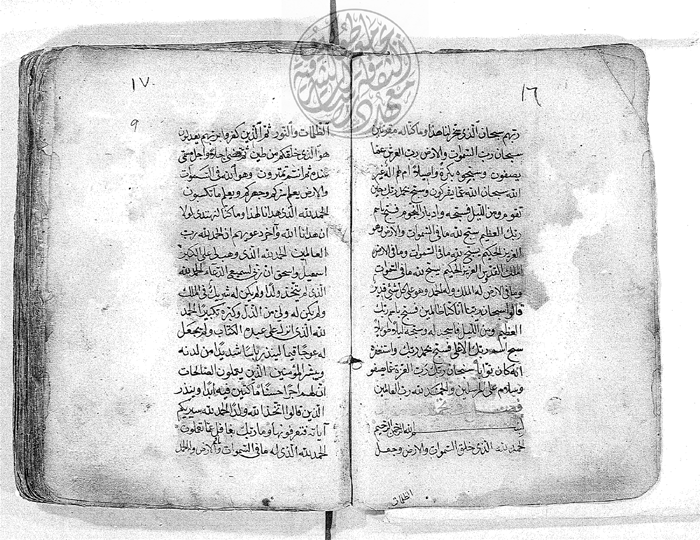 ١٦
ربهم سبحان الذى سخر لنا هذا وما كنا له مقرنين
سبحان رب السموات والارض رب العرش عما
يصفون وسبحوه بكرة واصيلا ام لهم اله غير
الله سبحان الله عما يشركون وسبح بحمد ربك حين
تقوم ومن الليل فسبحه وادبار النجوم فسبح باسم
ربك العظيم سبح لله ما فى السموات والارض وهو
العزيز الحكيم سبح لله ما فى السموات وما فى الارض
الملك القدوس العزيز الحكيم يسبح لله ما فى السموات
وما فى الارض له الملك وله الحمد وهو على كل شئ قدير
قالوا سبحان ربنا انا كنا ظالمين فسبح باسم ربك
العظيم ومن الليل فاسجد له وسبحه ليلا طويلا
سبح اسم ربك الاعلى فسبح بحمد ربك واستغفره
انه كان توابا سبحان ربك رب العزة عما يصفو
وسلام على المرسلين والحمد لله رب العالمين
الله الرحمن الرحيم
الحمد لله الذى خلق السموات والارض وجعل
الظلمات
١٧
9
الظلمات والنور ثم الذين كفروا بربهم يعدلون
هو الذى خلقكم من طين ثم قضى اجلا واجل مسمى
عنده ثم انتم تمترون وهو الله فى السموات
والارض يعلم سركم وجهركم ويعلم ما تكسبون
الحمد لله الذى هدانا لهذا وما كنا لنهتدى لولا
ان هدانا الله وآخر دعويهم ان الحمد لله رب
العالمين الحمد لله الذى وهب لى على الكبر
اسمعيل واسحق ان ربى لسميع الدعاء الحمد لله
الذى لم يتخذ ولدا ولم يكن له شريك فى الملك
ولم يكن له ولى من الذل وكبره تكبيرا الحمد
لله الذى انزل على عبده الكتاب ولم يجعل
له عوجا قيما لينذر باسا شديدا من لدنه
ويبشر المؤمنين الذين يعملون الصالحات
ان لهم اجرا حسنا ماكثين فيه ابدا وينذر
الذين قالوا اتخذ الله ولدا الحمد لله سيريكم
آياته فتعرفونها وما ربك بغافل عما تعملون
الحمد لله الذى له ما فى السموات والارض وله الحمد